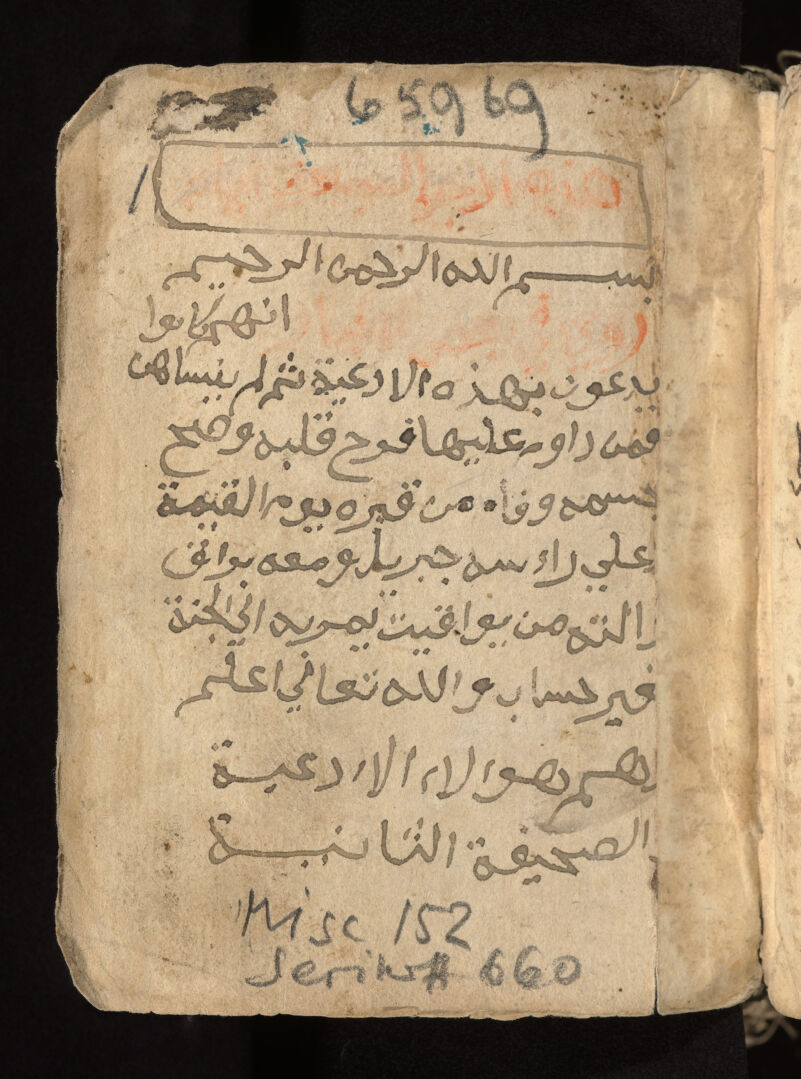 65969
هذه الادعية
بسم الله الرحمن الرحيم
انهم كانوا
يدعون بهذه الادعية ثم لم ينساهن
فمن داوم عليها فرح قلبه وصح
جسمه وقام من قبره يوم القيمة
علي راءسه جبريل ومعه براق
من يواقيت يمر به الي الجنة
بغير حساب والله تعالي اعلم
وهم هوالاء الادعية
الصحيفة الثانية
Misc 152
Serial# 660